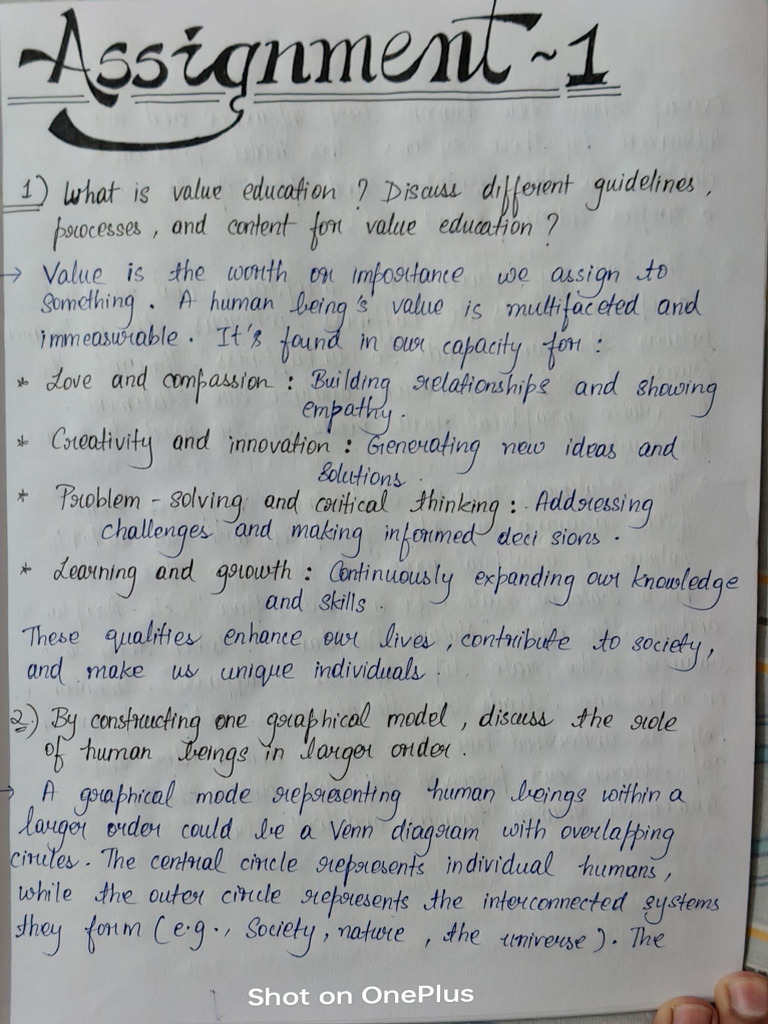 Assignment ~ 1
1) What is value education ? Discuss different guidelines,
processes, and content for value education ?
→ Value is the worth or importance we assign to
something. A human being's value is multifaceted and
immeasurable. It's found in our capacity for :
* Love and compassion : Building relationships and showing
empathy.
* Creativity and innovation : Generating new ideas and
solutions.
* Problem - solving and critical thinking : Addressing
challenges and making informed deci sions.
* Learning and growth : Continuously expanding our knowledge
and skills.
These qualities enhance our lives, contribute to society,
and make us unique individuals.
2) By constructing one graphical model, discuss the role
of human beings in larger order.
→ A graphical mode representing human beings within a
larger order could be a Venn diagram with overlapping
circles. The central circle represents individual humans,
while the outer circle represents the interconnected systems
they form (e.g., Society, nature, the universe). The
Shot on OnePlus